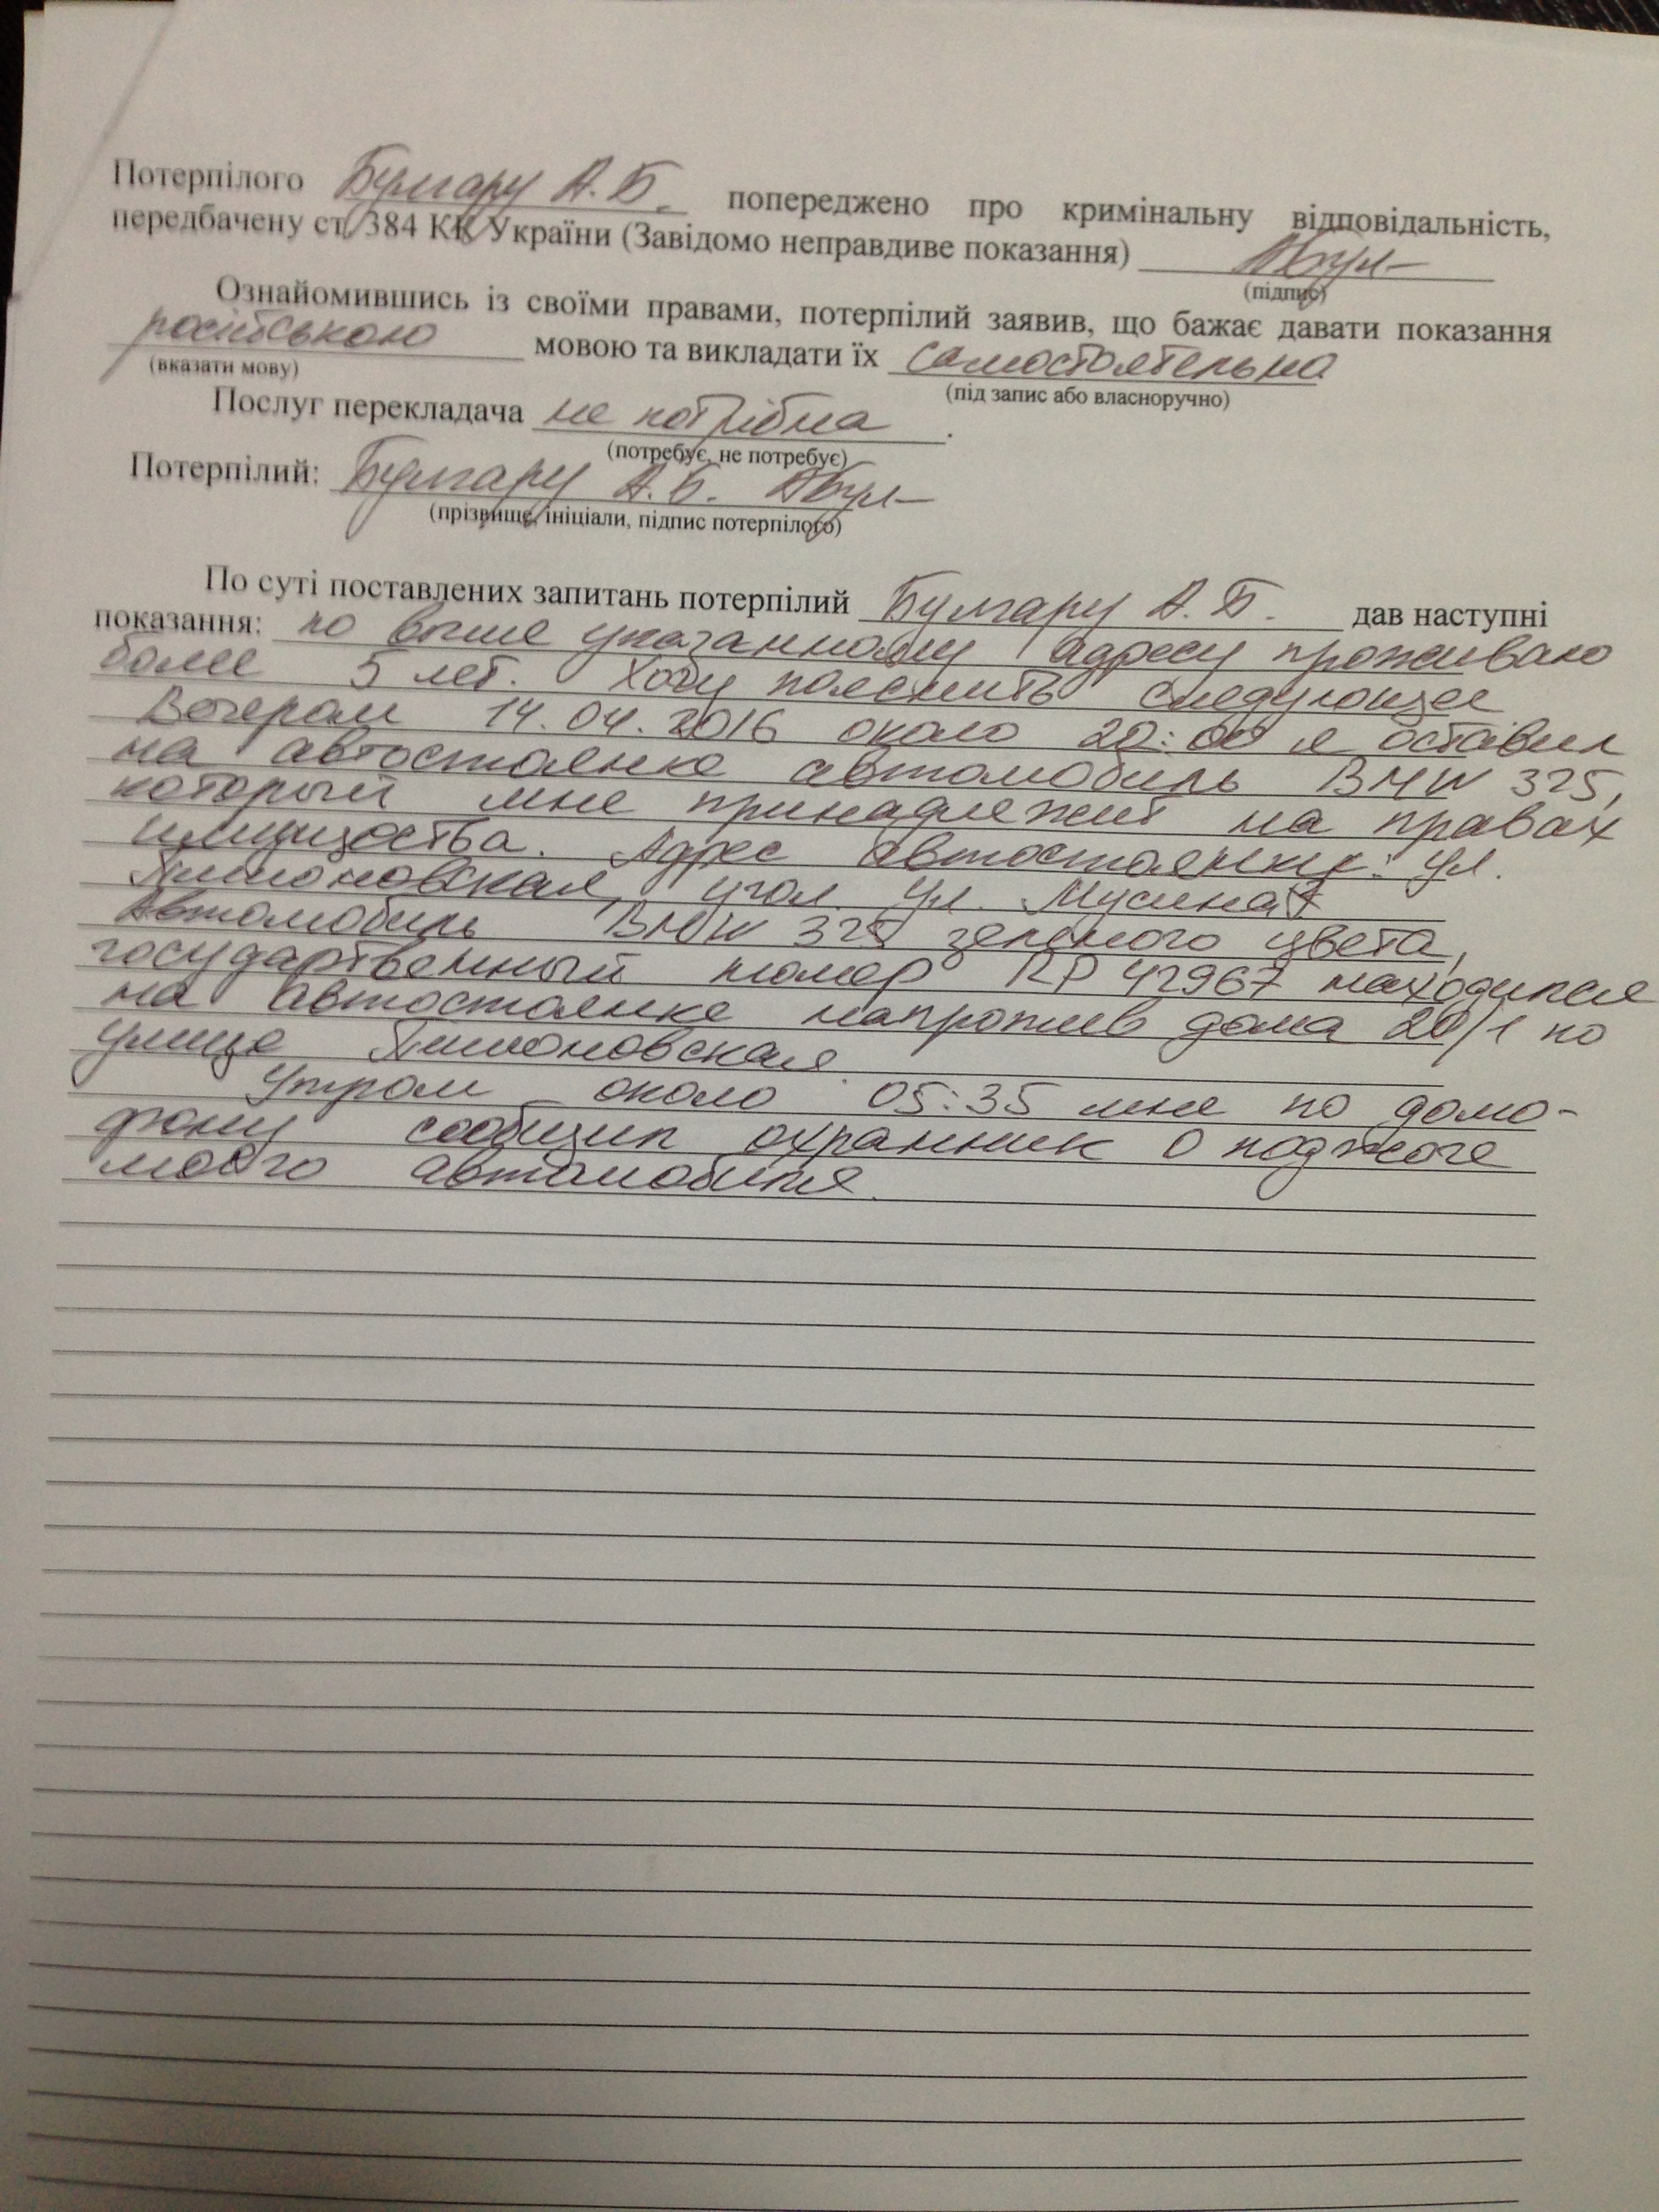 Потерпілого Булгару А.Б. попереджено про кримінальну відповідальність,
передбачену ст. 384 КК України (Завідомо неправдиве показання)
(підпис)
Ознайомившись із своїми правами, потерпілий заявив, що бажає давати показання
російською мовою та викладати їх самостоятельно
(вказати мову) (під запис або власноручно)
Послуг перекладача не потрібна.
(потребує, не потребує)
Потерпілий: Булгару А.Б.
(прізвище, ініціали, підпис потерпілого)
По суті поставлених запитань потерпілий Булгару А.Б. дав наступні
показання: по выше указанному адресу проживаю
более 5 лет. Хочу пояснить следующее
Вечером 14.04.2016 около 20:00 я оставил
на автостоянке автомобиль BMW 325,
который мне принадлежит на правах
имущества. Адрес автостоянки: ул.
угол ул.
Автомобиль BMW 325 зеленого цвета,
государственный номер RP 42967 находился
на автостоянке напротив дома 20/1 по
улице
Утром около 05:35 мне по домо-
фону сообщил охранник о поджоге
моего автомобиля.